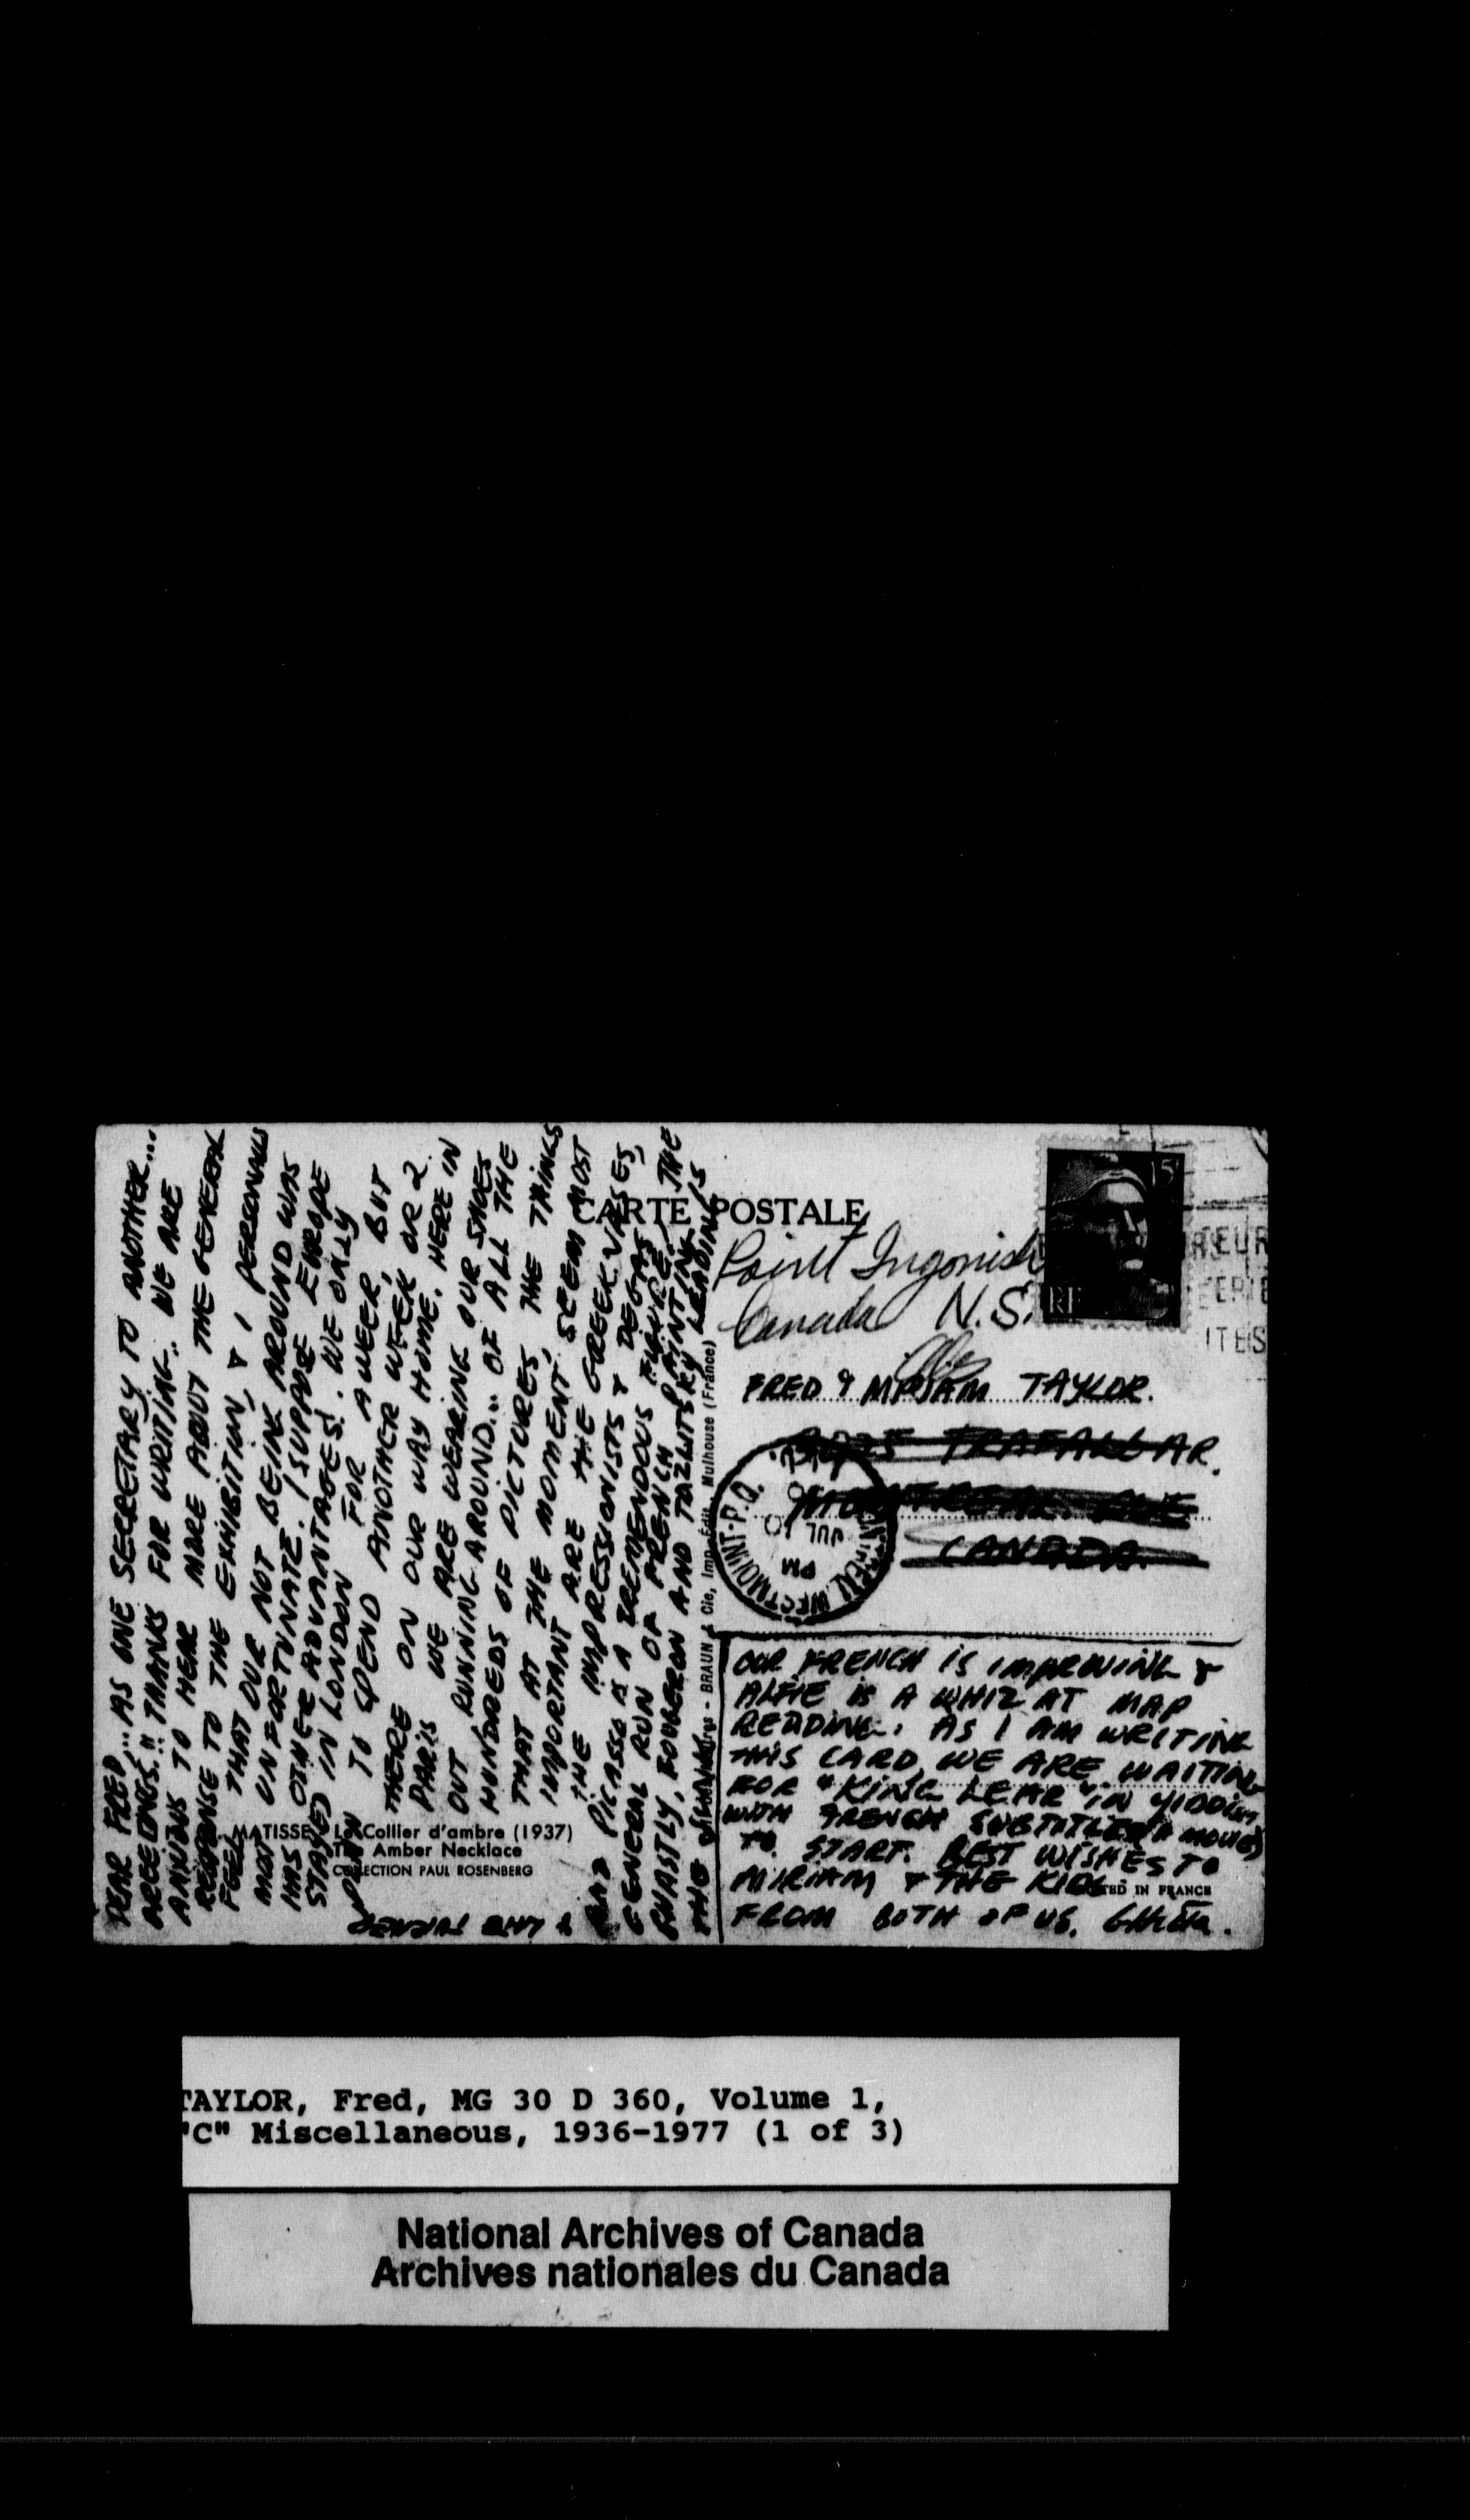 DEAR FRED... AS ONE SECRETARY TO ANOTHER...
GREETINGS!! THANKS FOR WRITING.. WE ARE
ANXIOUS TO HEAR MORE ABOUT THE GENERAL
RESPONSE TO THE EXHIBITION, & I PERSONALLY
FEEL THAT OUR NOT BEING AROUND WAS
MOST UNFORTUNATE. I SUPPOSE EUROPE
HAS OTHER ADVANTAGES!. WE ONLY
STAYED IN LONDON FOR A WEEK, BUT
TO SPEND ANOTHER WEEK OR 2
THERE ON OUR WAY HOME. HERE IN
PARIS WE ARE WEARING OUR SHOES
OUT RUNNING AROUND... OF ALL THE
HUNDREDS OF PICTURES, THE THINGS
THAT AT THE MOMENT, SEEM MOST
IMPORTANT ARE THE GREEK VASES,
THE IMPRESSIONISTS & DEGAS
PICASSO IS A TREMENDOUS FIGURE. THE
GENERAL RUN OF FRENCH PAINTING IS
GHASTLY, FOUGERON AND TAZLITSKY LEADING
THE
MATISSE - Le Collier d'ambre (1937)
The Amber Necklace
COLLECTION PAUL ROSENBERG
BRAUN & Cie, Imp.-Édit., Mulhouse (France)
CARTE POSTALE
15F
RF
Point Ingonish
Canada N.S.
FRED & MIRIAM TAYLOR.
TRAFALGAR.
MONTREAL
CANADA.
MONTREAL WESTMOUNT-P.Q.
PM
JUL 10
OUR FRENCH IS IMPROVING &
ALFIE IS A WHIZ AT MAP
READING. AS I AM WRITING
THIS CARD, WE ARE WAITING
FOR "KING LEAR" IN YIDDISH
WITH FRENCH SUBTITLES (A MOVIE)
TO START. BEST WISHES TO
MIRIAM & THE KIDS
FROM BOTH OF US. Ghitta.
TED IN FRANCE
TAYLOR, Fred, MG 30 D 360, Volume 1,
"C" Miscellaneous, 1936-1977 (1 of 3)
National Archives of Canada
Archives nationales du Canada